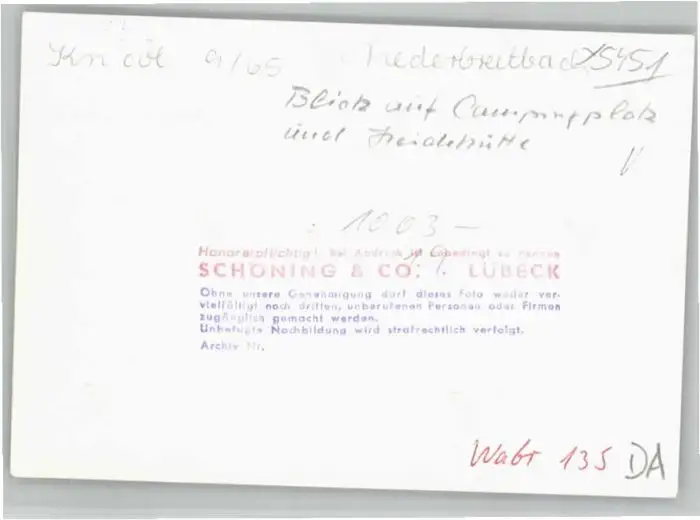 Kn cöl 9/65 Niederbreitbach 5451
Blick auf Campingplatz
und Heidehütte
1003 -
Honorarpflichtig! Bei Abdruck ist unbedingt zu nennen
SCHÖNING & CO. LÜBECK
Ohne unsere Genehmigung darf dieses Foto weder ver-
vielfältigt noch dritten, unberufenen Personen oder Firmen
zugänglich gemacht werden.
Unbefugte Nachbildung wird strafrechtlich verfolgt.
Archiv Nr.
Wabr 135 DA